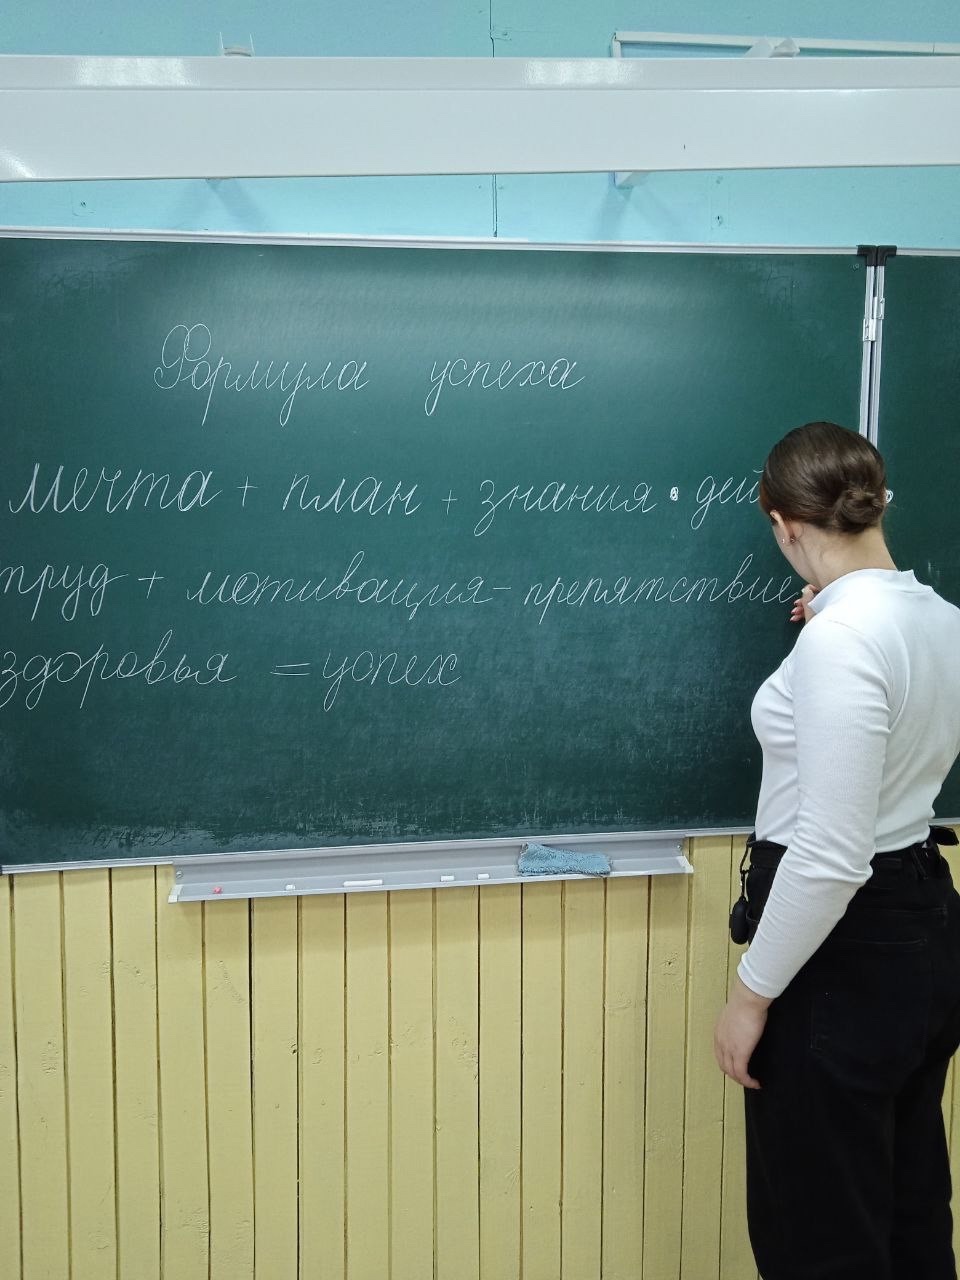 Формула успеха
мечта + план + знания • дей
труд + мотивация - препятствие
здоровья = успех